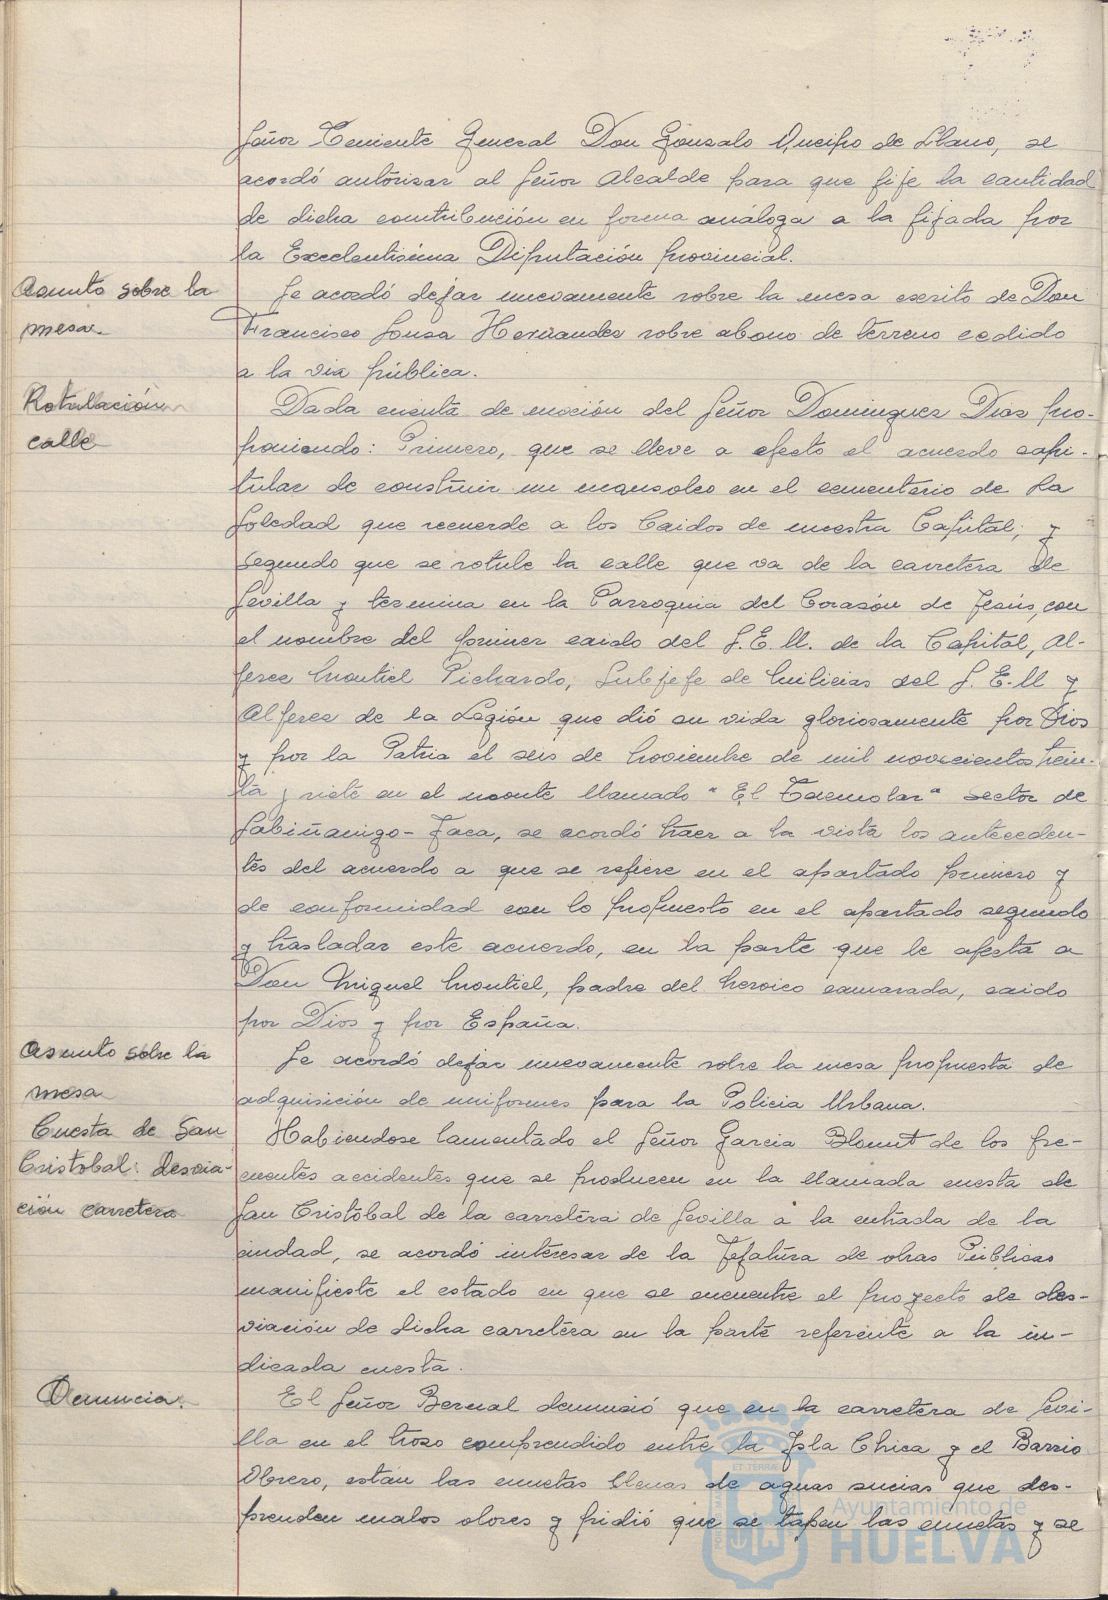 Señor Teniente General Don Gonzalo Queipo de Llano, se
acordó autorisar al Señor Alcalde para que fije la cantidad
de dicha contribución en forma análoga a la fijada por
la Excelentisima Diputación provincial.
Asunto sobre la
mesa.
Se acordó dejar nuevamente sobre la mesa escrito de Don
Francisco Sousa Hernandez sobre abono de terreno cedido
a la via pública.
Rotulación
calle
Dada cuenta de moción del Señor Dominguez Dias pro-
poniendo: Primero, que se lleve a efecto el acuerdo capi-
tular de construir un mausoleo en el cementerio de La
Soledad que recuerde a los Caidos de nuestra Capital; y
segundo que se rotule la calle que va de la carretera de
Sevilla y termina en la Parroquia del Corasón de Jesús, con
el nombre del primer caido del S.E.U. de la Capital, Al-
ferez Montiel Pichardo, Subjefe de Milicias del S.E.U y
Alferez de la Legión que dió su vida gloriosamente por Dios
y por la Patria el seis de Noviembre de mil novecientos trein-
ta y siete en el monte llamado "El Tremolar" sector de
Sabiñanigo-Jaca, se acordó traer a la vista los anteceden-
tes del acuerdo a que se refiere en el apartado primero y
de conformidad con lo propuesto en el apartado segundo
y trasladar este acuerdo, en la parte que le afecta a
Don Miguel Montiel, padre del heroico camarada, caido
por Dios y por España.
Asunto sobre la
mesa
Se acordó dejar nuevamente sobre la mesa propuesta de
adquisición de uniformes para la Policia Urbana.
Cuesta de San
Cristobal: desvia-
ción carretera
Habiendose lamentado el Señor Garcia Blount de los fre-
cuentes accidentes que se producen en la llamada cuesta de
San Cristóbal de la carretera de Sevilla a la entrada de la
ciudad, se acordó interesar de la Jefatura de obras Públicas
manifieste el estado en que se encuentre el proyecto de des-
viación de dicha carretera en la parte referente a la in-
dicada cuesta.
Denuncia.
El Señor Bernal denunció que en la carretera de Sevi-
lla en el troso comprendido entre la Isla Chica y el Barrio
Obrero, están las cunetas llenas de aguas sucias que des-
prenden malos olores y pidió que se tapen las cunetas y se
Ayuntamiento de
HUELVA